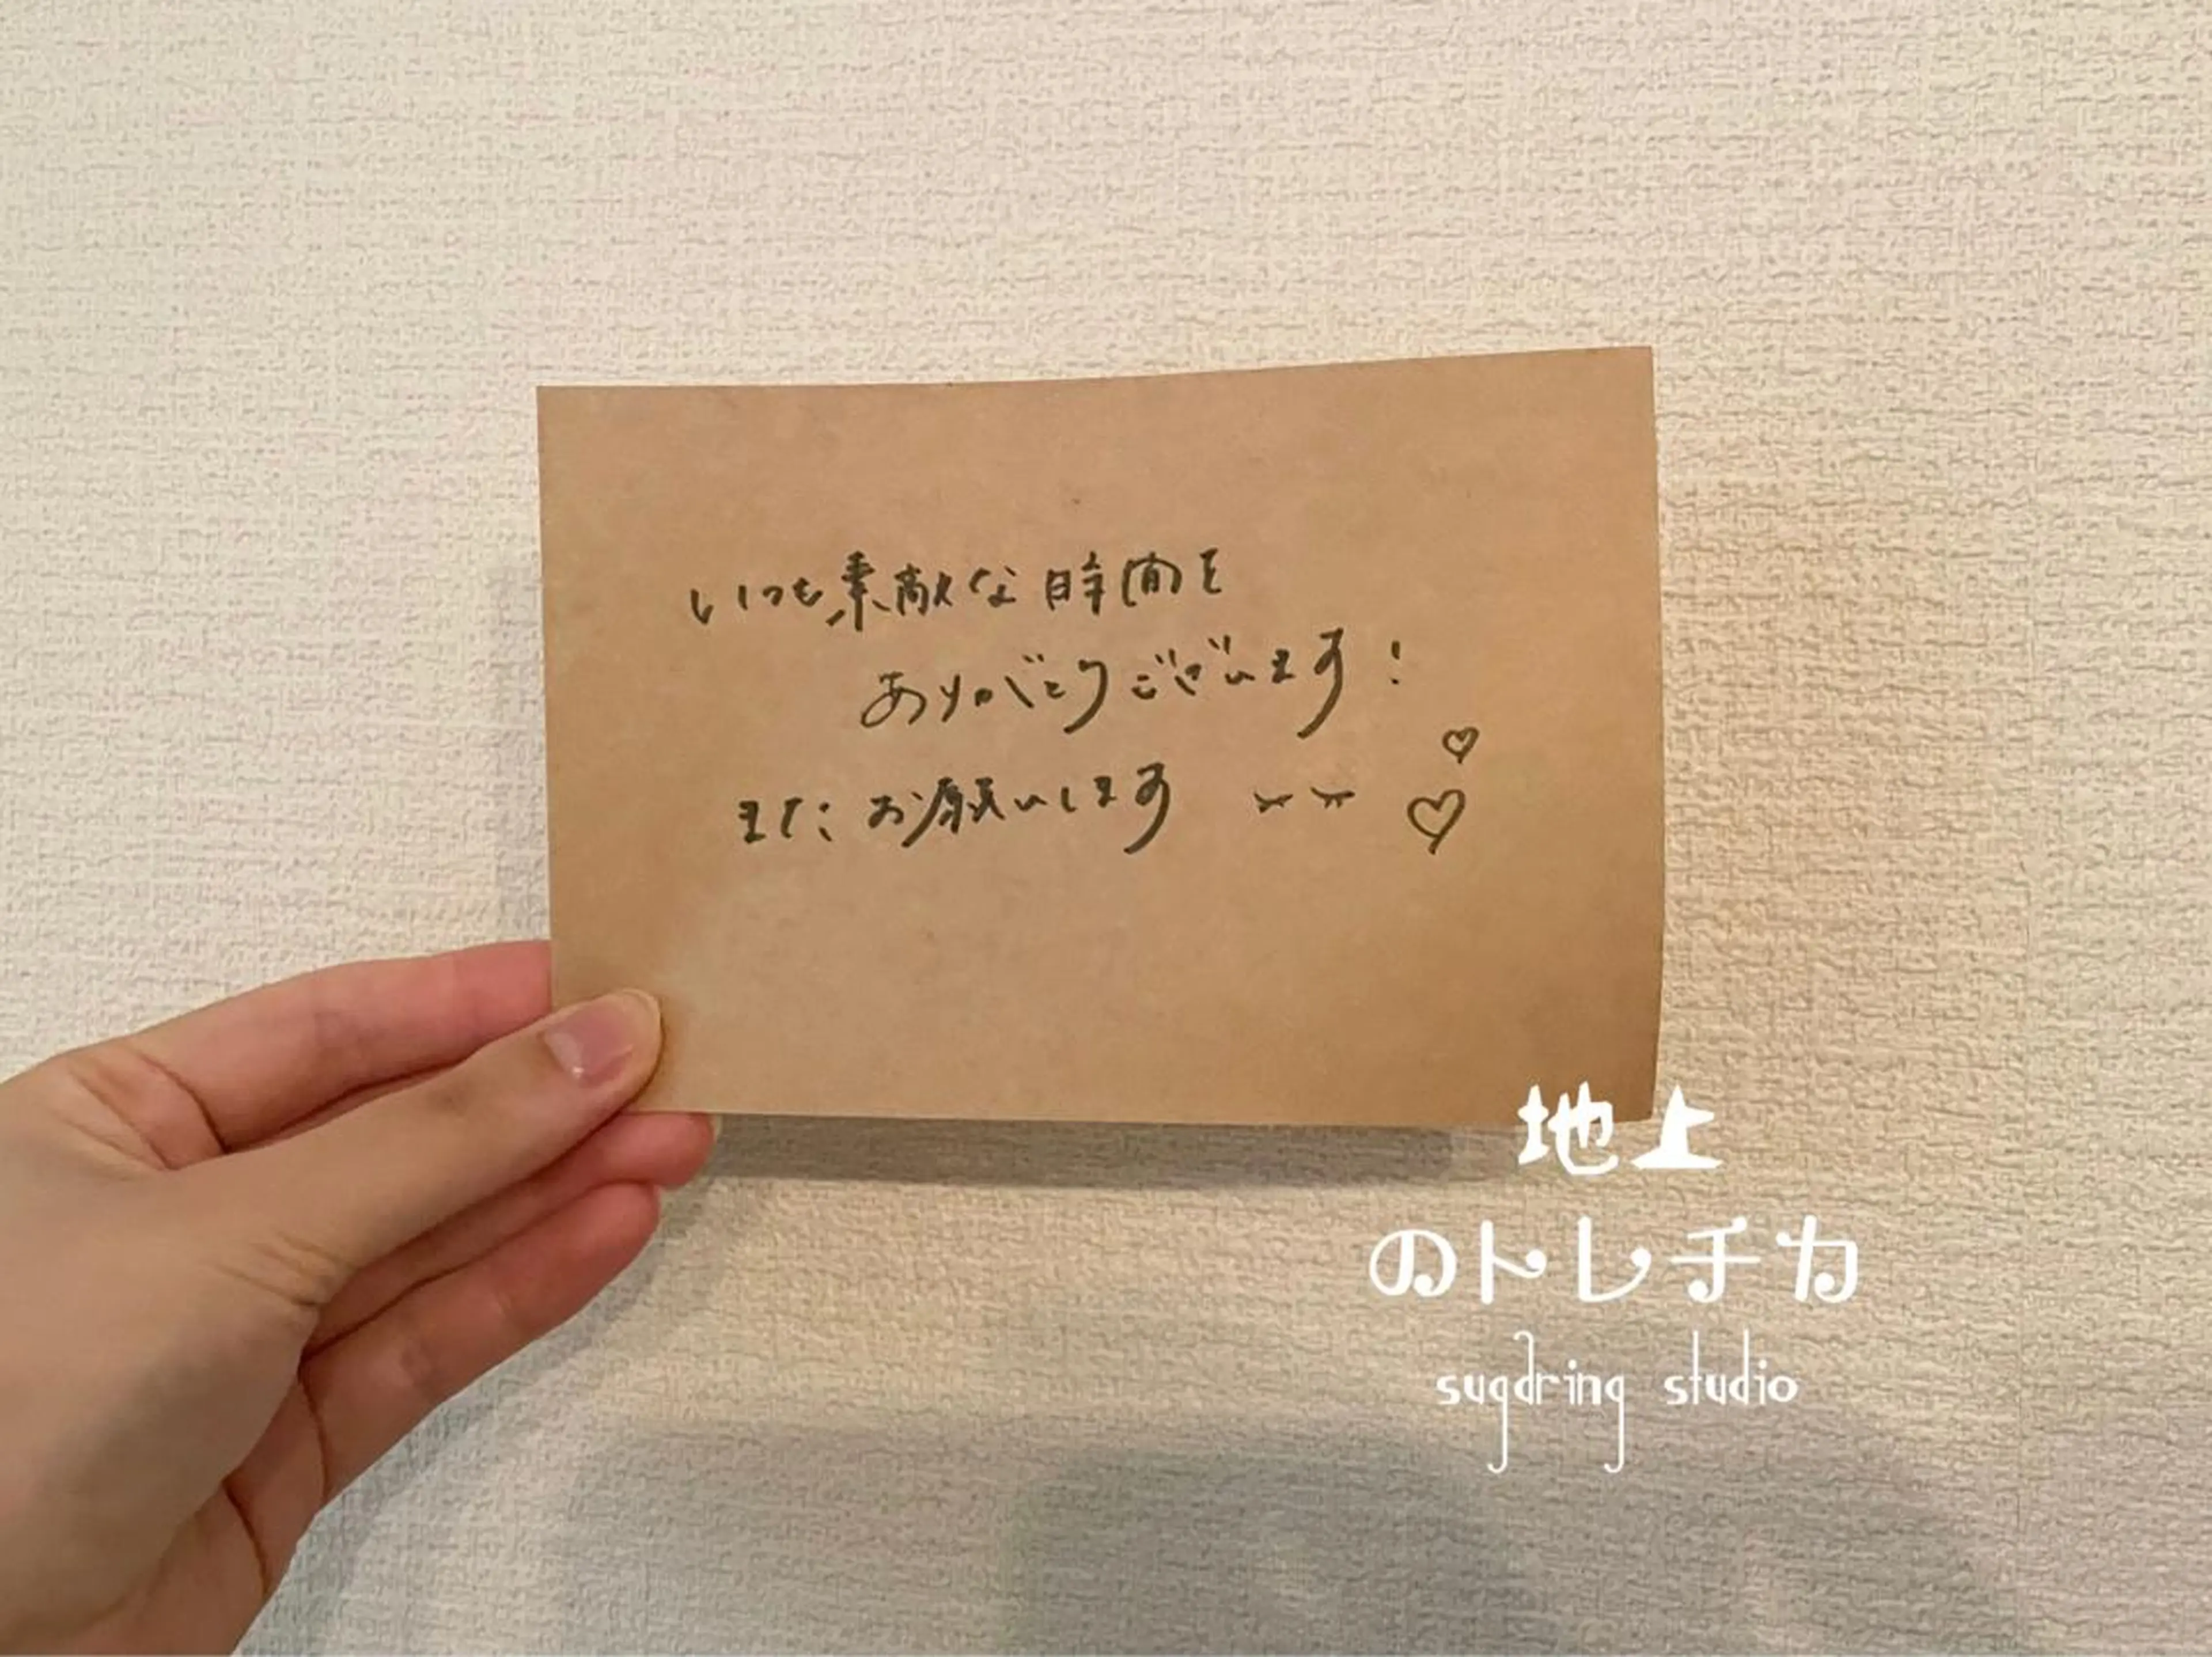 いつも素敵な時間を
ありがとうございます！
またお願いします ♡
♡
地上
のトレチカ
sugdring studio